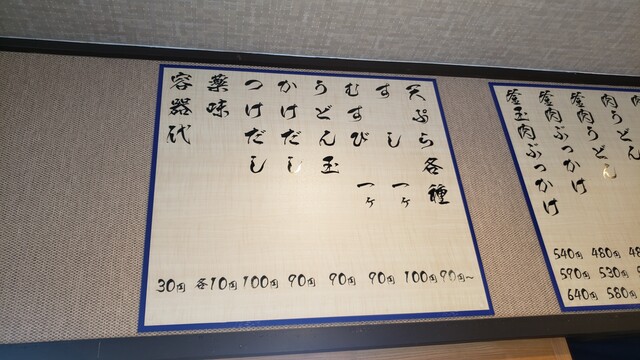 天ぷら各種 90円～
すし 一ヶ 100円
むすび 一ヶ 90円
うどん玉 90円
かけだし 90円
つけだし 100円
薬味 各10円
容器代 30円
肉うどん
釜肉うどん
釜肉ぶっかけ
480円
530円
580円
釜玉肉ぶっかけ
540円
590円
640円